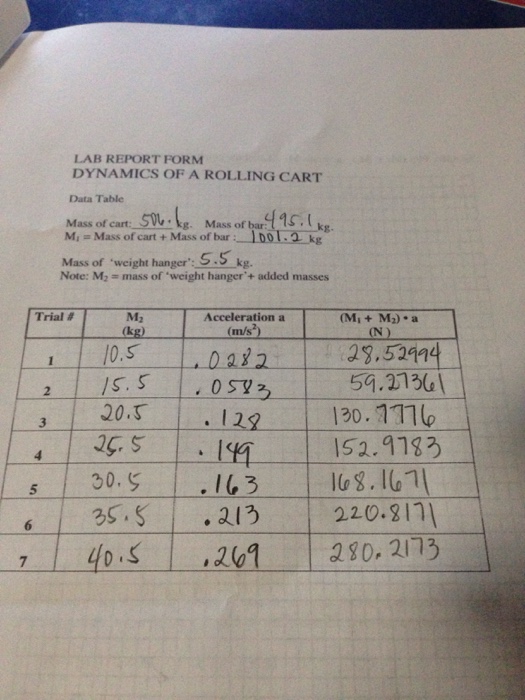 LAB REPORT FORM
DYNAMICS OF A ROLLING CART
Data Table
Mass of cart: 506.1kg. Mass of bar: 495.1 kg.
M₁ = Mass of cart + Mass of bar : 1001.2 kg
Mass of 'weight hanger': 5.5 kg.
Note: M₂ = mass of 'weight hanger'+ added masses
Trial # M₂ (kg) Acceleration a (m/s²) (M₁ + M₂) • a (N)
1 10.5 .0282 28.52994
2 15.5 .0583 59.27361
3 20.5 .128 130.7776
4 25.5 .149 152.9783
5 30.5 .163 168.1671
6 35.5 .213 220.8171
7 40.5 .269 280.2173